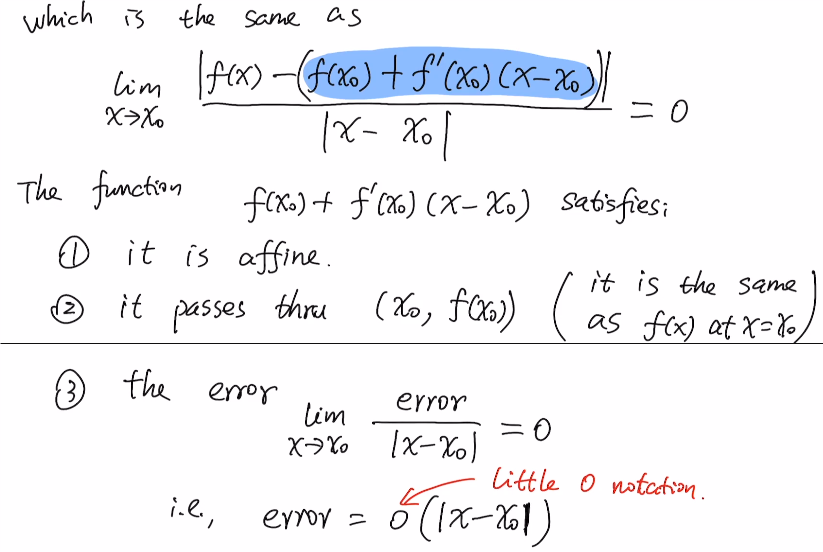 which is the same as
lim x→x₀ |f(x) - (f(x₀) + f'(x₀)(x-x₀))| / |x - x₀| = 0
The function f(x₀) + f'(x₀)(x-x₀) satisfies;
① it is affine.
② it passes thru (x₀, f(x₀)) (it is the same
as f(x) at x=x₀)
③ the error lim x→x₀ error / |x-x₀| = 0
little o notation.
i.e., error = o(|x-x₀|)